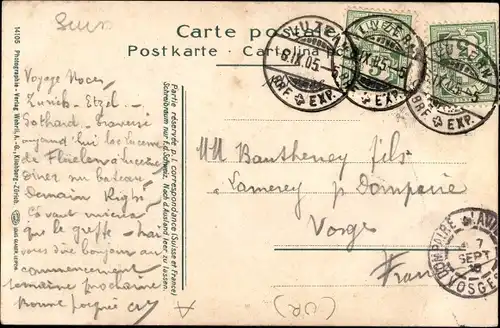 Carte postale
Postkarte - Cartolina
LUZERN
6.IX.05.
BRF. EXP.
LUZERN
IX.05
BRF. EXP.
LUZERN
IX.05
BRF. EXP.
14105 Photographie-Verlag Wehrli, A.-G., Kilchberg-Zürich.
Partie réservée p. l. correspondance (Suisse et France)
Schreibraum nur f. d. Schweiz. Nach d. Ausland leer zu lassen.
Voyage Noces
Zurich - Etzel -
Gothard - Traversé
aujourd'hui lac Lucerne
de Fluelen à Lucerne
diner au bateau
Demain Righi
Ca vaut mieux
que le greffe -
vous dire bonjour au
commencement
semaine prochaine
Bonne poignée
MM Bautheney fils
Lamerey p Dompaire
Vosges
France
DOMPAIRE
7
SEPT
VOSGES